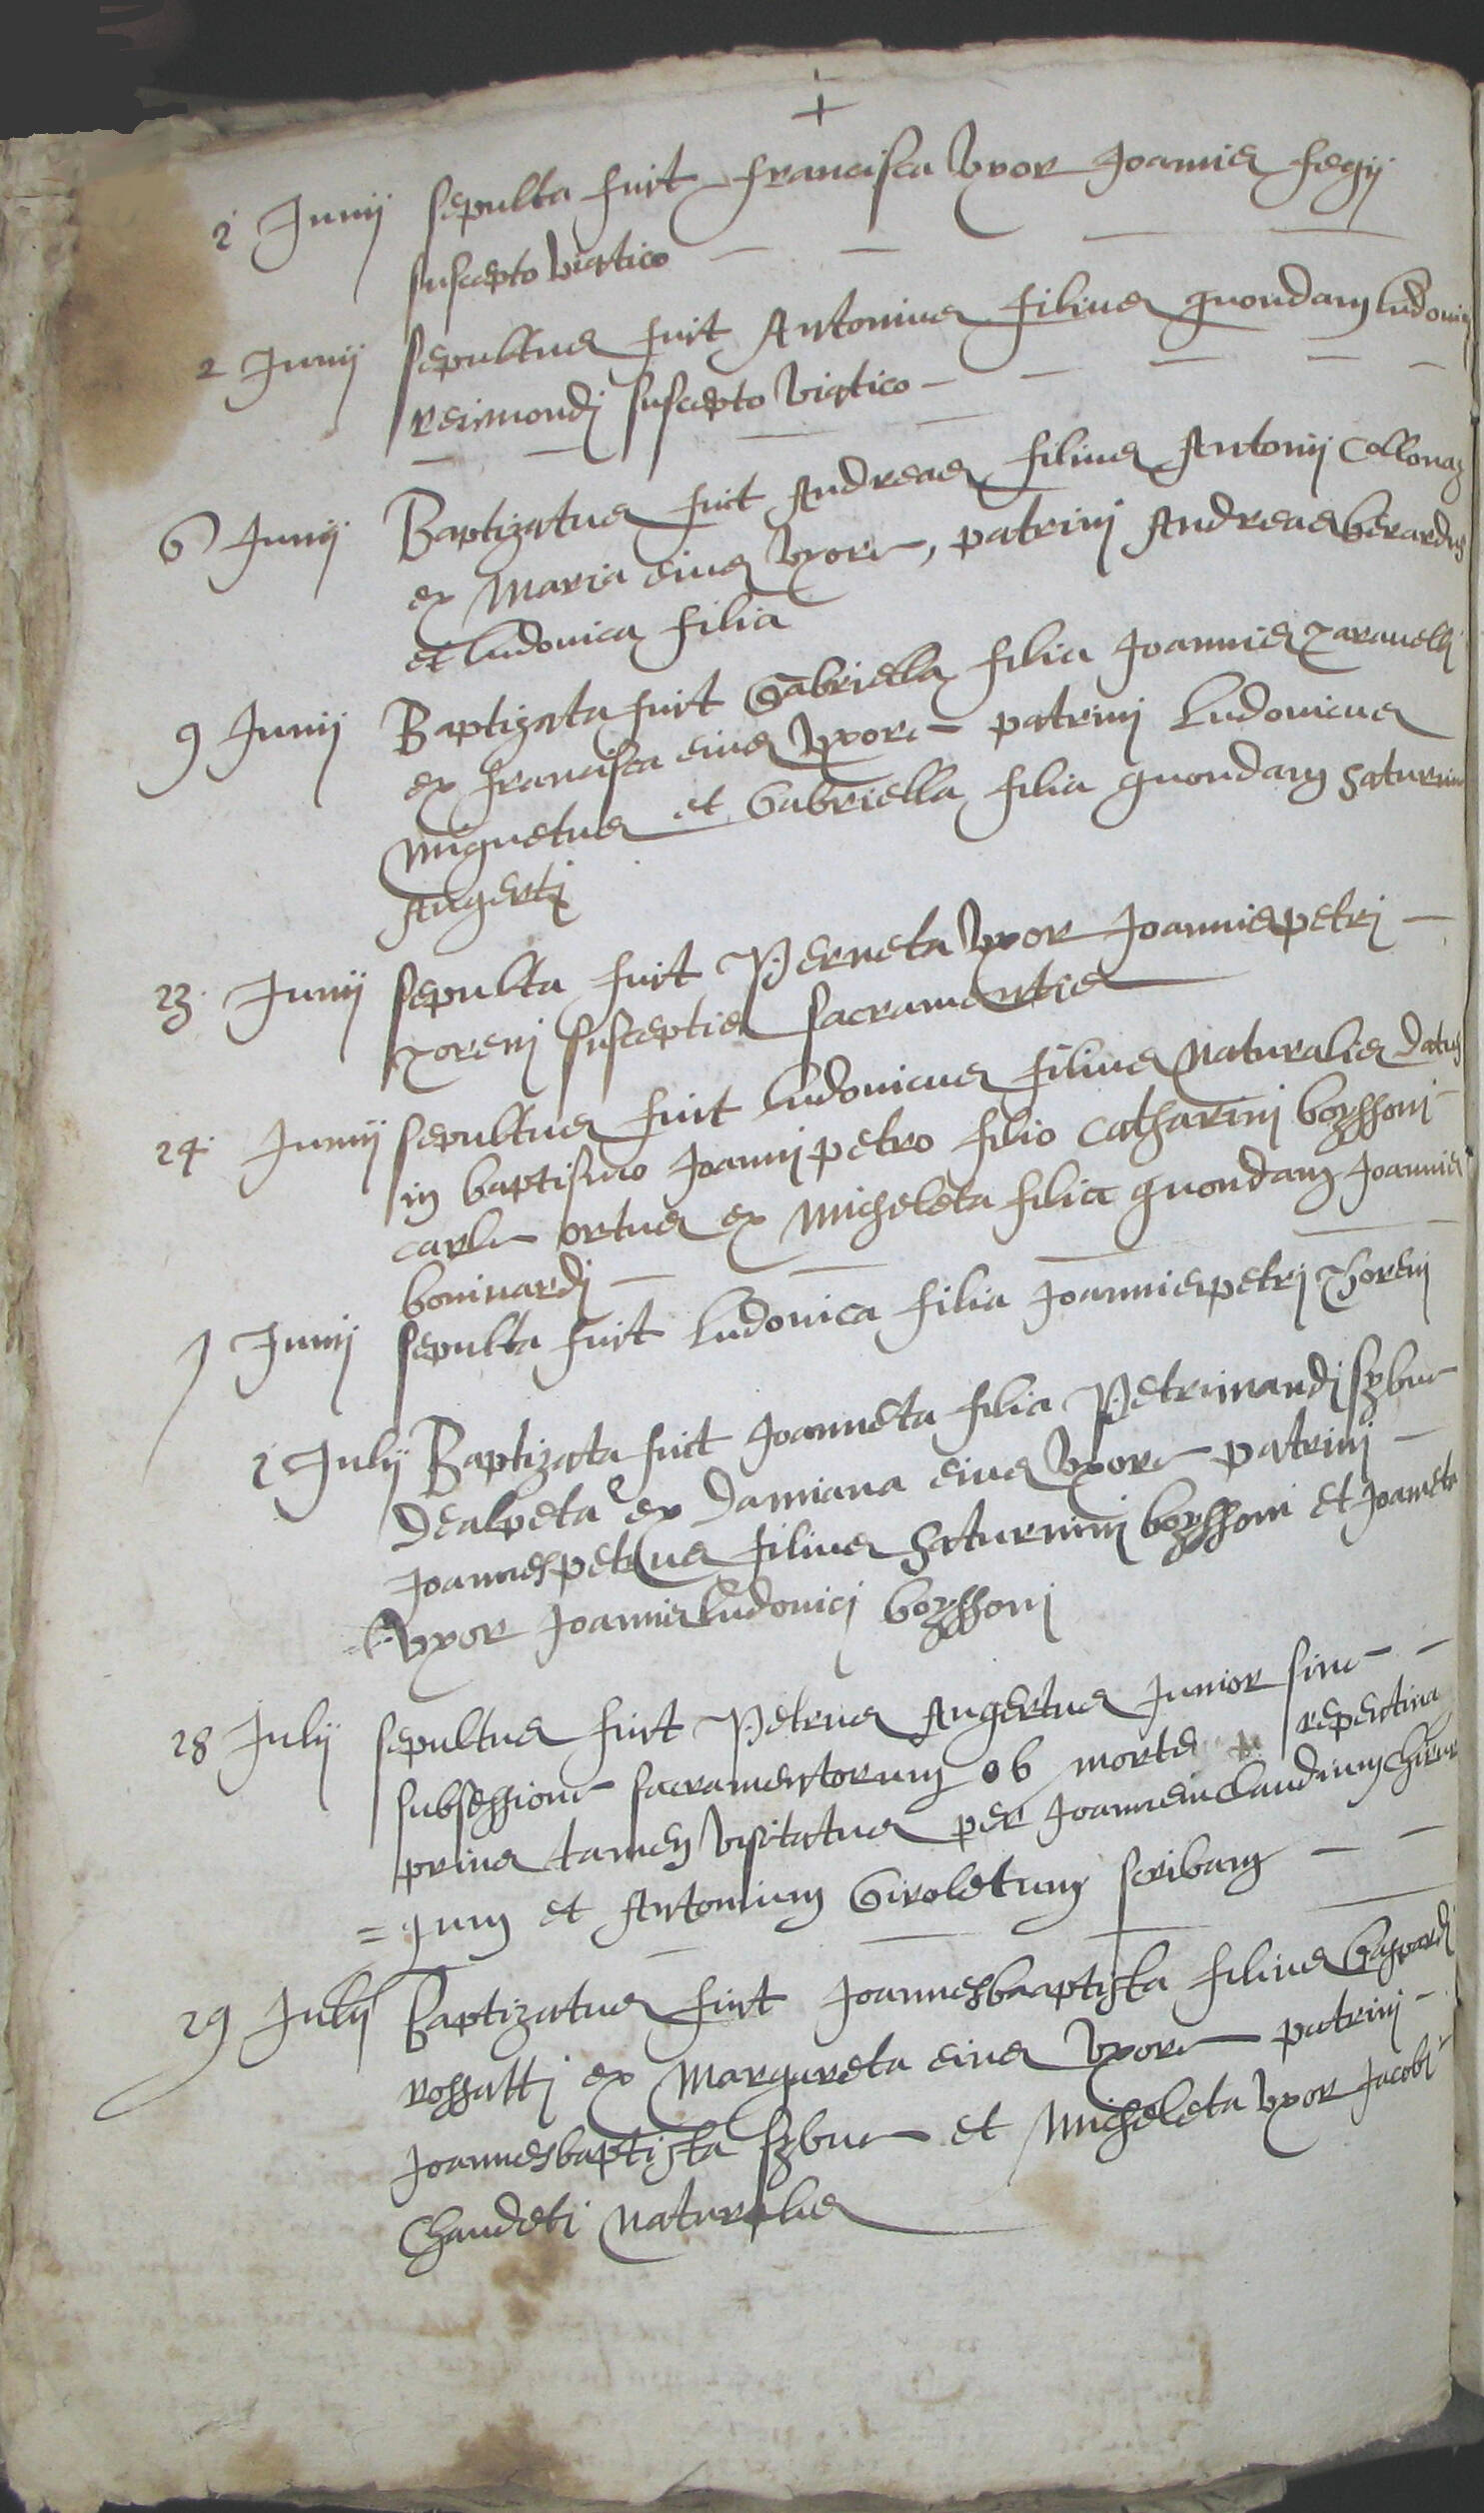 +
2 Junij sepulta fuit francisca Uxor Joannis fegij
suscepto Viatico
2 Junij sepultus fuit Antonius filius quondam ludovici
reimondj suscepto Viatico
6 Junij Baptizatus fuit Andreas filius Antonij Collonaz
ex Maria eius Uxore, patrinj Andreas berardus
et ludovica filia
9 Junij Baptizata fuit Gabriella filia Joannis
ex francisca eius Uxore patrinj Ludovicus
Miguetus et Gabriella filia quondam Saturnini
Angertj
23 Junij sepulta fuit Perneta Uxor Joannispetrj
susceptis sacramentis
24 Junij sepultus fuit ludovicus filius Naturalis datus
in baptismo Joannipetro filio Catharinj boyssoni
carle ortus ex Micheleta filia quondam Joannis
boninardj
Junij sepulta fuit ludovica filia Joannispetrj
2 Julij Baptizata fuit Joanneta filia Petrimandj sybue
dealpeta ex Damiana eius Uxore patrinj
Joannespetrus filius Saturninj boyssoni et Joaneta
Uxor Joannisludovicj boyssonj
28 Julij sepultus fuit Petrus Angertus Junior sine
subsessione sacramentorum ob morte repentina
prius tamen Visitatus per Joannemclaudium chirur
=gum et Antonium Giroletum scribam
29 Julij Baptizatus fuit Joannesbaaptista filius Gaspardj
rossattj ex Margareta eius Uxore patrinj
Joannesbaptista sybue et Micheleta Uxor Jacobi
Chaudeti Naturalis